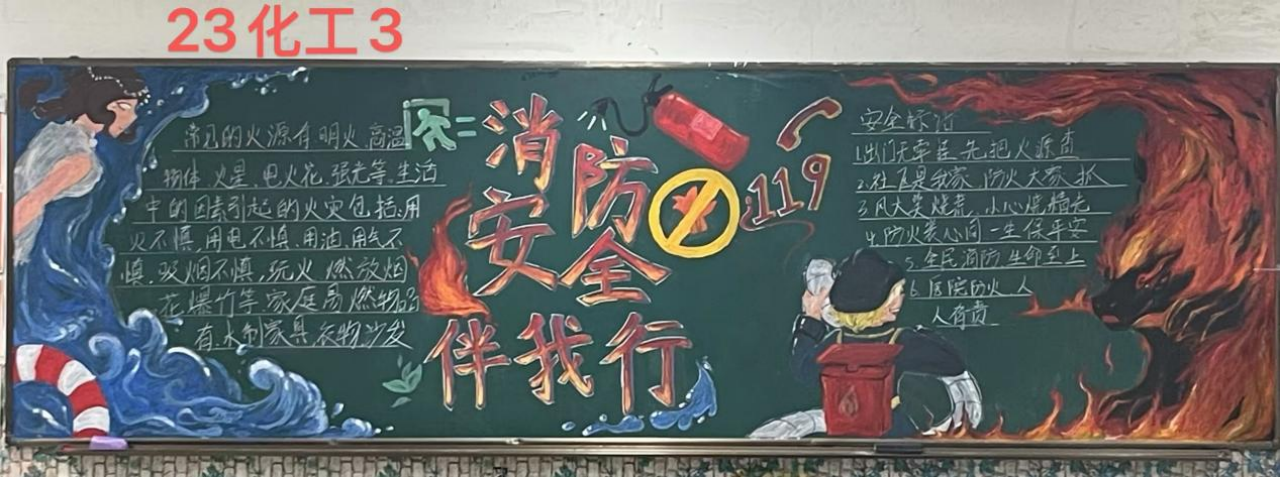 23化工3
常见的火源有明火、高温
物体、火星、电火花、强光等、生活
中的因素引起的火灾包括:用
火不慎、用电不慎、用油、用气不
慎、吸烟不慎、玩火、燃放烟
花爆竹等、家庭易燃物品
有、木制家具、衣物、沙发
消防
安全
伴我行
119
安全标语
1.出门无牵挂 先把火源查
2.社区是我家 防火大家抓
3.风大莫烧香、小心焚精光
4.防火表心间 一生保平安
5.全民消防 生命至上
6.医院防火 人
人有责